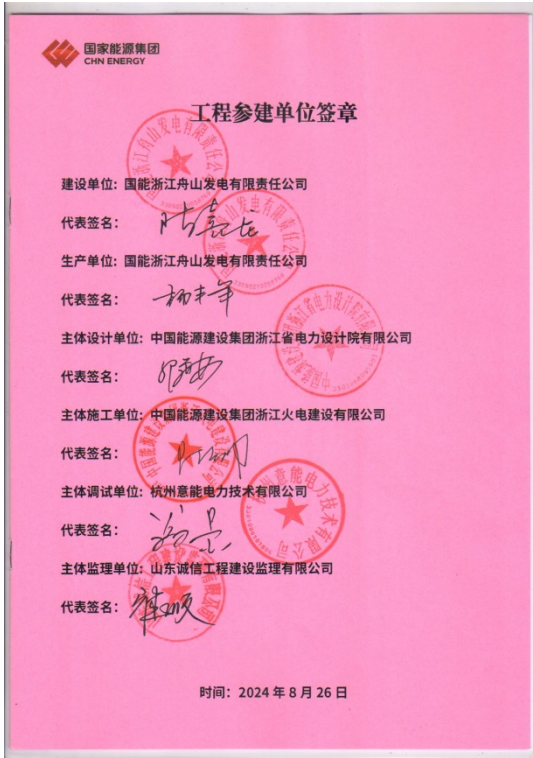 国家能源集团
CHN ENERGY
工程参建单位签章
建设单位: 国能浙江舟山发电有限责任公司
代表签名:
生产单位: 国能浙江舟山发电有限责任公司
代表签名: 杨丰年
主体设计单位: 中国能源建设集团浙江省电力设计院有限公司
代表签名:
主体施工单位: 中国能源建设集团浙江火电建设有限公司
代表签名:
主体调试单位: 杭州意能电力技术有限公司
代表签名:
主体监理单位: 山东诚信工程建设监理有限公司
代表签名:
时间: 2024 年 8 月 26 日